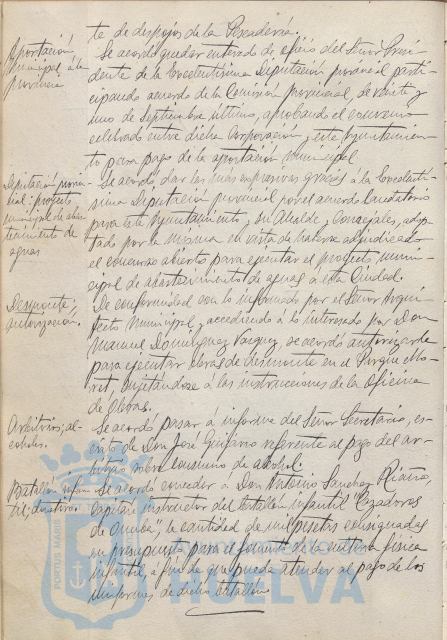 te de despojos de la Pescadería.
Aportación municipal á la provincia
Se acordó quedar enterado de oficio del Señor Presi-
dente de la Excelentísima Diputación provincial parti-
cipando acuerdo de la Comisión provincial de veinte y
uno de Septiembre último, aprobando el convenio
celebrado entre dicha Corporación y este Ayuntamien-
to para pago de la aportación municipal.
Diputación provin-
cial: proyecto
municipal de abas-
tecimiento de
aguas
Se acordó, dar las más expresivas gracias á la Excelentí-
sima Diputación provincial por el acuerdo laudatorio
para este Ayuntamiento, su Alcalde y Concejales, adop-
tado por la misma en vista de haberse adjudicado
el concurso abierto para ejecutar el proyecto muni-
cipal de abastecimiento de aguas á esta Ciudad.
Desmonte;
autorización.
De conformidad con lo informado por el Señor Arqui-
tecto Municipal y accediendo á lo interesado por Don
Manuel Domínguez Vazquez, se acordó autorizarle
para ejecutar obras de desmonte en el Parque Mo-
ret, sujetándose á las instrucciones de la Oficina
de Obras.
Arbitrios; al-
coholes.
Se acordó pasar á informe del Señor Secretario, es-
crito de Don José referente al pago del ar-
bitrio sobre consumo de alcohol.
Batallón infan-
til; donativo.
Se acordó conceder á Don Antonio Sanchez
Capitán instructor del batallón infantil "Cazadores
de Onuba", la cantidad de mil pesetas consignadas
en presupuesto para el fomento de la cultura física
infantil, á fin de que pueda atender al pago de los
uniformes de dicho batallón.
PORTUS MARIS
HUELVA